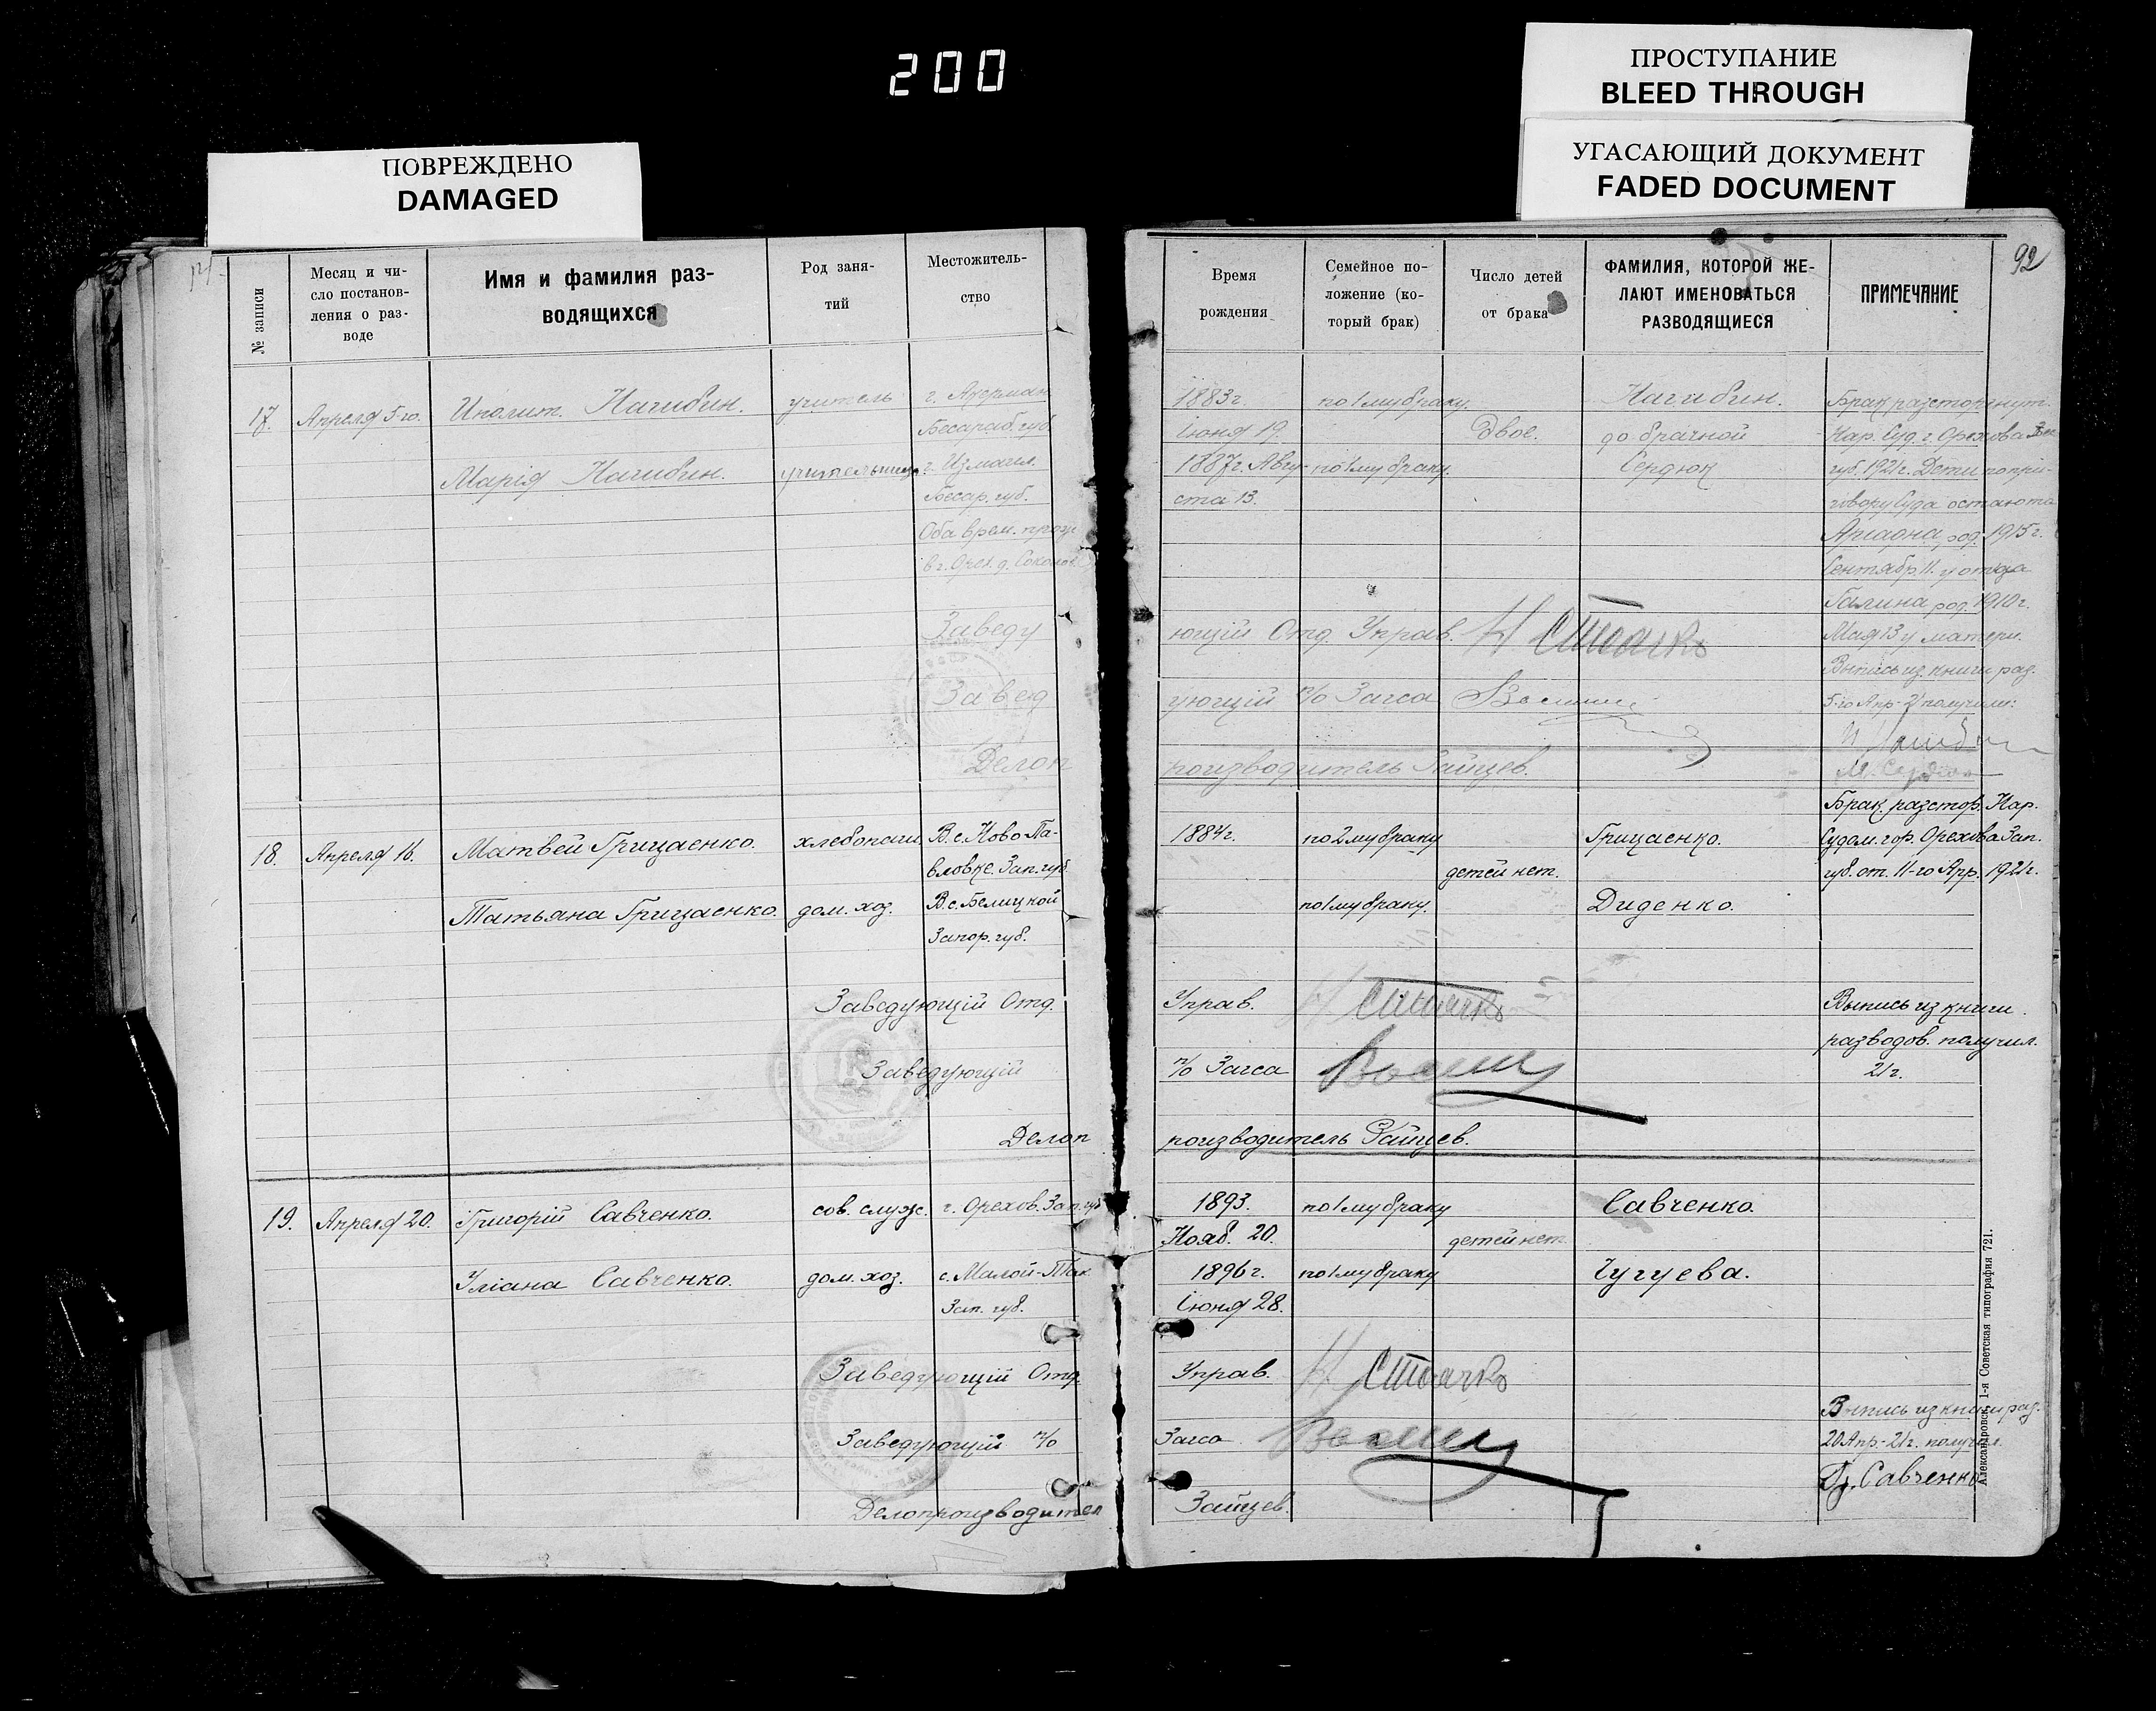 200
ПРОСТУПАНИЕ
BLEED THROUGH
УГАСАЮЩИЙ ДОКУМЕНТ
FADED DOCUMENT
ПОВРЕЖДЕНО
DAMAGED
92
№ записи
Месяц и чи-
сло постанов-
ления о раз-
воде
Имя и фамилия раз-
водящихся
Род заня-
тий
Местожитель-
ство
Время
рождения
Семейное по-
ложение (ко-
торый брак)
Число детей
от брака
ФАМИЛИЯ, КОТОРОЙ ЖЕ-
ЛАЮТ ИМЕНОВАТЬСЯ
РАЗВОДЯЩИЕСЯ
ПРИМЕЧАНИЕ
17.
Апреля 5-го.
Иполит. Нагибин.
учитель
г. Акерман
Бесараб. губ.
Марія Нагибин.
учительница
г. Измаил.
Бессар. губ.
Оба врем. прож
в г. Орех. д.
1883 г.
Іюня 19.
1887 г. Авгу-
ста 13.
по 1 му браку.
по 1 му браку.
Двое.
Нагибин.
до брачной
Сердюк
Брак разсторгнут.
Нар. Суд. г. Орехова Зап.
губ. 1921 г. Дети по при-
говору Суда остаются
род. 1915 г.
Сентябр. 11. у отца
Галина род. 1910 г.
Мая 13 у матери.
Выпись из книги раз.
5-го Апр.-21 получили:
Заведу
ющій Отд. Управ.
Завед
ующій п/о Загса
Делоп
роизводитель Зайцев.
18.
Апреля 16.
Матвей Грицаенко.
хлебопаш.
В с. Ново Па-
вловке. Зап. губ.
Татьяна Грицаенко.
дом. хоз.
В с. Белицкой
Запор. губ.
1884 г.
по 2 му браку
детей нет.
по 1 му браку.
Грицаенко.
Диденко.
Брак разстор. Нар.
Судом. гор. Орехова Зап.
губ. от 11-го Апр. 1921 г.
Заведующій Отд.
Управ.
Выпись из книги
разводов. получил.
21 г.
Заведующій
п/о Загса
Делоп
роизводитель Зайцев.
19.
Апреля 20.
Григорій Савченко.
сов. служ.
г. Орехов. Зап. губ
Уліана Савченко.
дом. хоз.
с. Малой-Ток.
Зап. губ.
1893.
Нояб. 20.
1896 г.
Іюня 28.
по 1 му браку
детей нет
по 1 му браку
Савченко.
Чугуева.
Заведующій Отд.
Управ.
Заведующій п/о
Загса
Делопроизводител
Зайцев.
Выпись из книги раз.
20 Апр.-21 г. получил.
Гр. Савченко
Александровск, 1-я Советская типография 721.